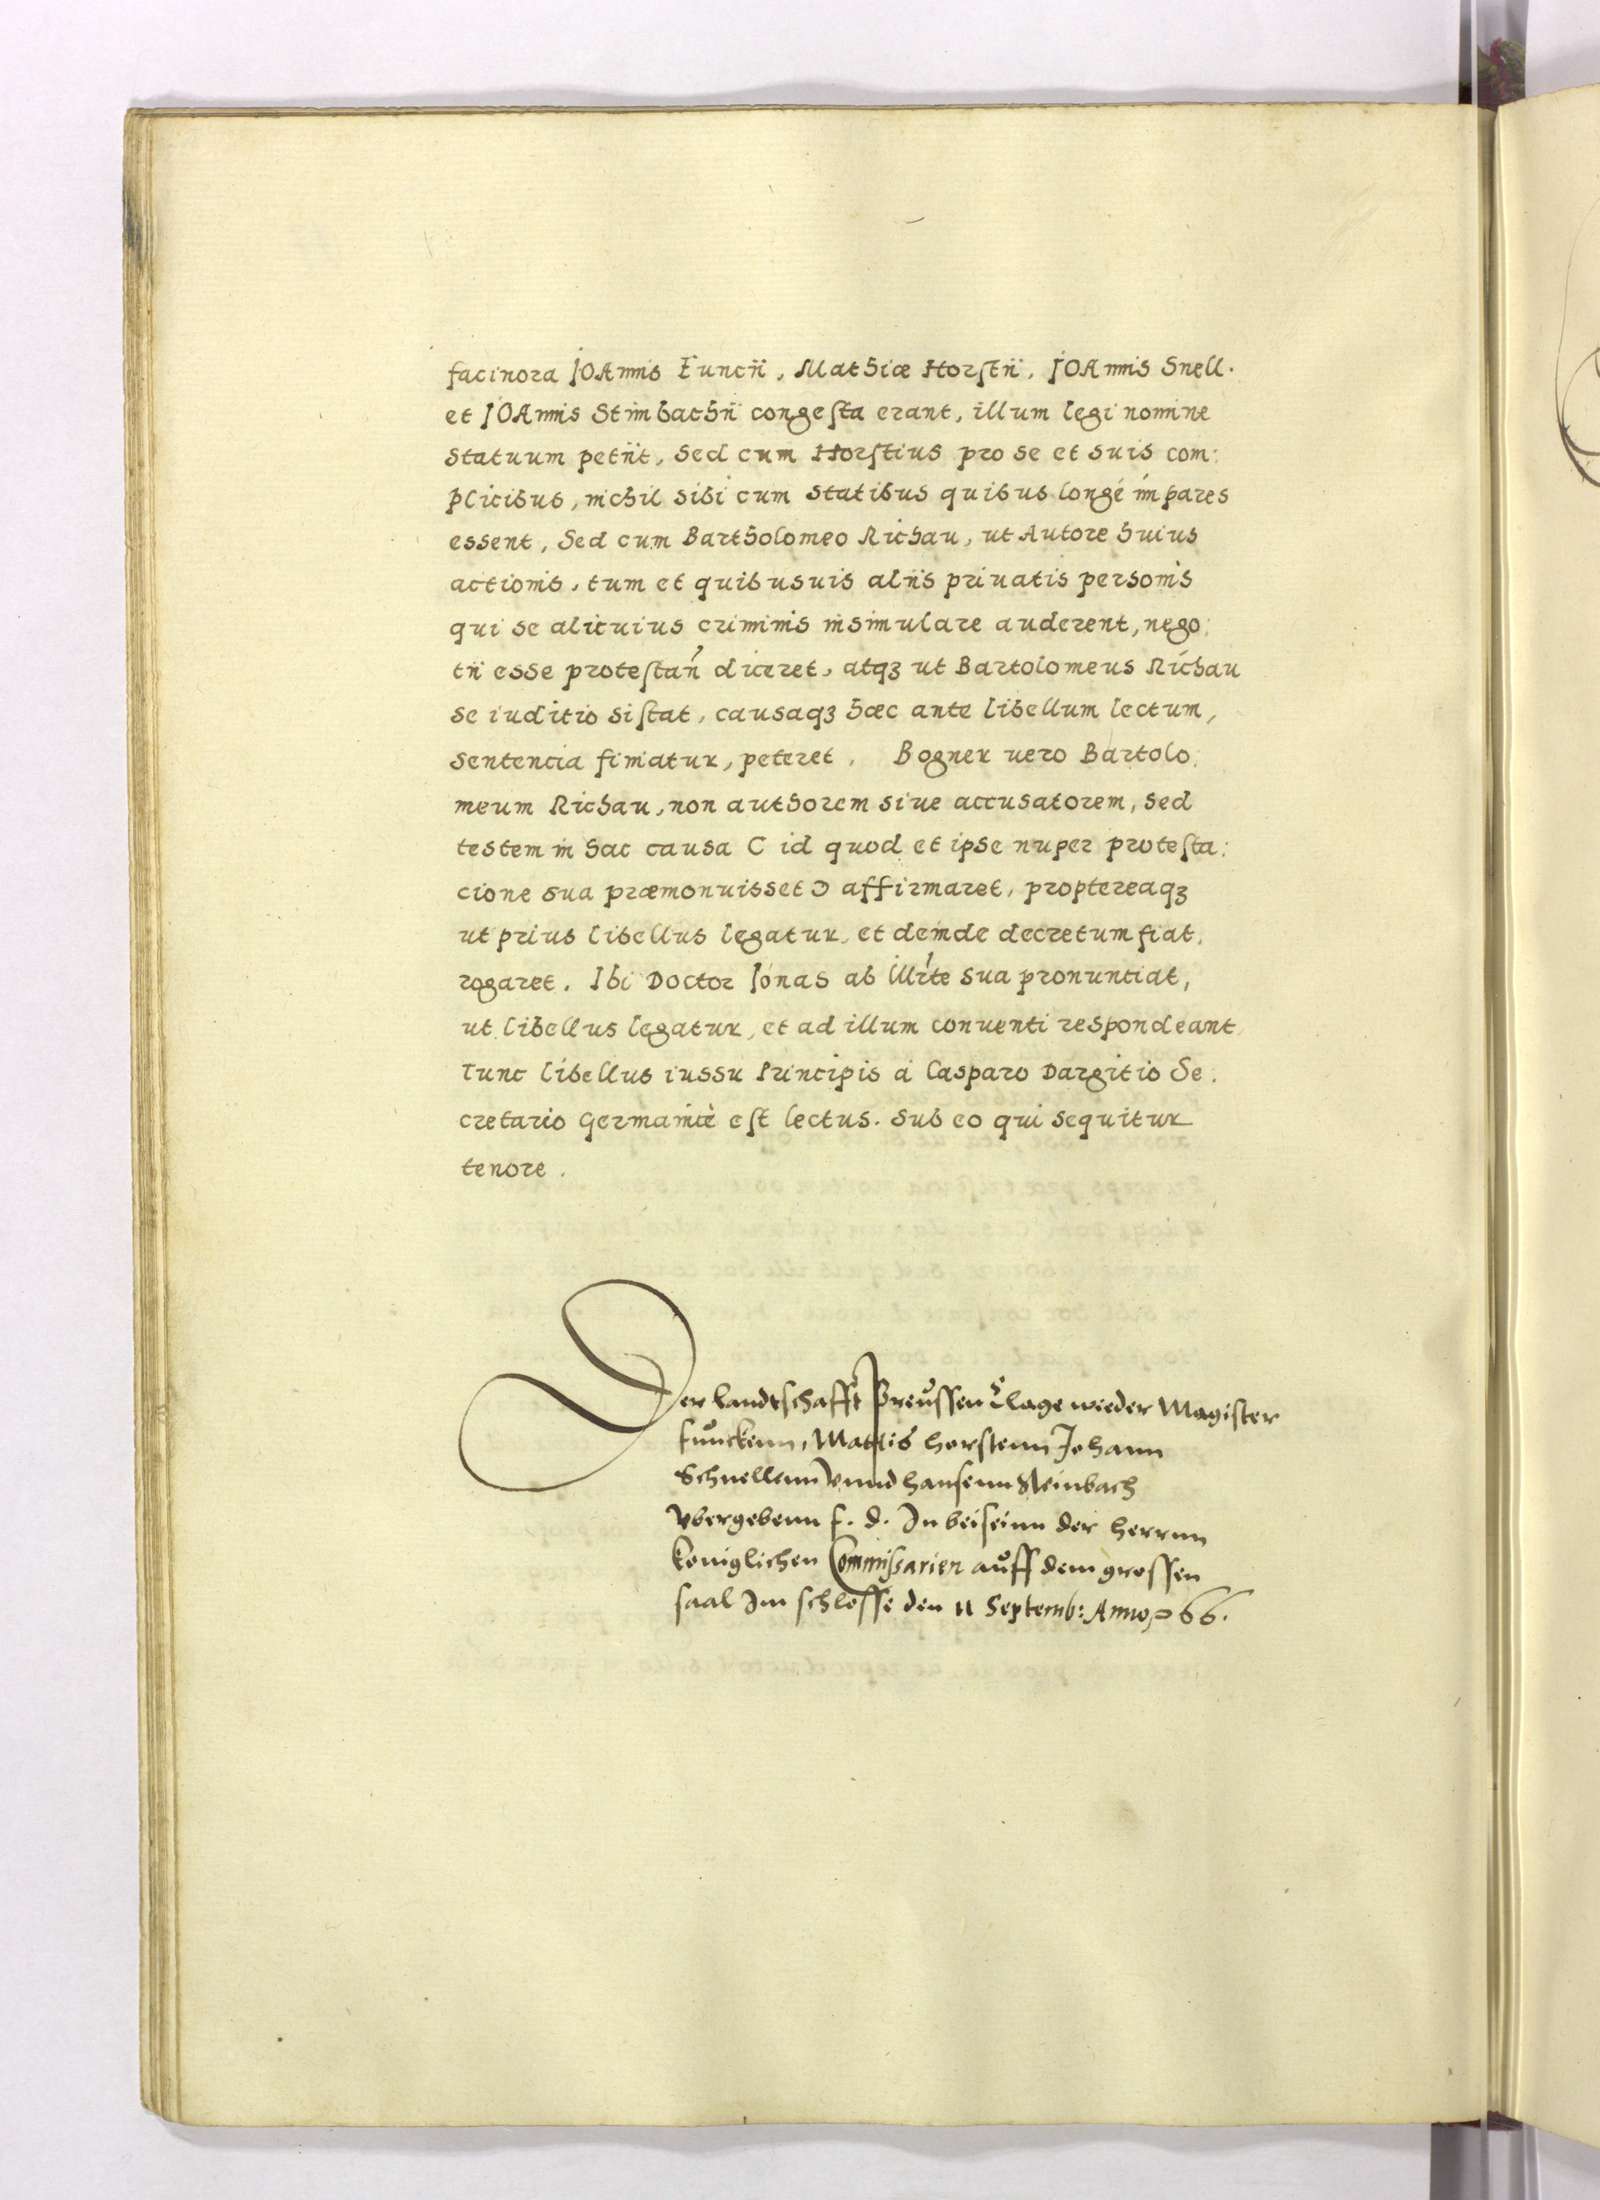 facinora JOAnnis Funcii, Mathiæ Horstii, JOAnnis Snell.
et JOAnnis Steinbachii congesta erant, illum legi nomine
statuum petiit, Sed cum Horstius pro se et suis com:
plicibus, nichil sibi cum statibus quibus longé impares
essent, Sed cum Bartholomeo Richau, ut Autore huius
actionis, tum et quibusuis aliis priuatis personis
qui se alicuius criminis insimulare auderent, nego:
tii esse protestan̄ diceret, atqꝫ ut Bartolomeus Richau
se iuditio sistat, causaqꝫ hæc ante libellum lectum,
sentencia finiatur, peteret. Bogner uero Bartolo:
meum Richau, non authorem siue accusatorem, sed
testem in hac causa ( id quod et ipse nuper protesta:
cione sua præmonuisset ) affirmaret, proptereaqꝫ
ut prius libellus legatur, et deinde decretum fiat,
rogaret. Ibi Doctor Jónas ab Illr̄te sua pronunciat,
ut libellus legatur, et ad illum conuenti respondeant
Tunc libellus iussu Principis á Casparo Dargitio Se:
cretario Germanicè est lectus. Sub eo qui sequitur
tenore.
Der Landtschafft Preussen Clage wieder Magister
Funckenn, Mattis Horstenn Johann
Schnellenn Vnnd Hansenn Steinbach
Vbergebenn f. d. In beiseinn der Herrnn
Koniglichen Commissarien auff dem grossen
saal Im schlosse den 11 Septemb: Anno 66.